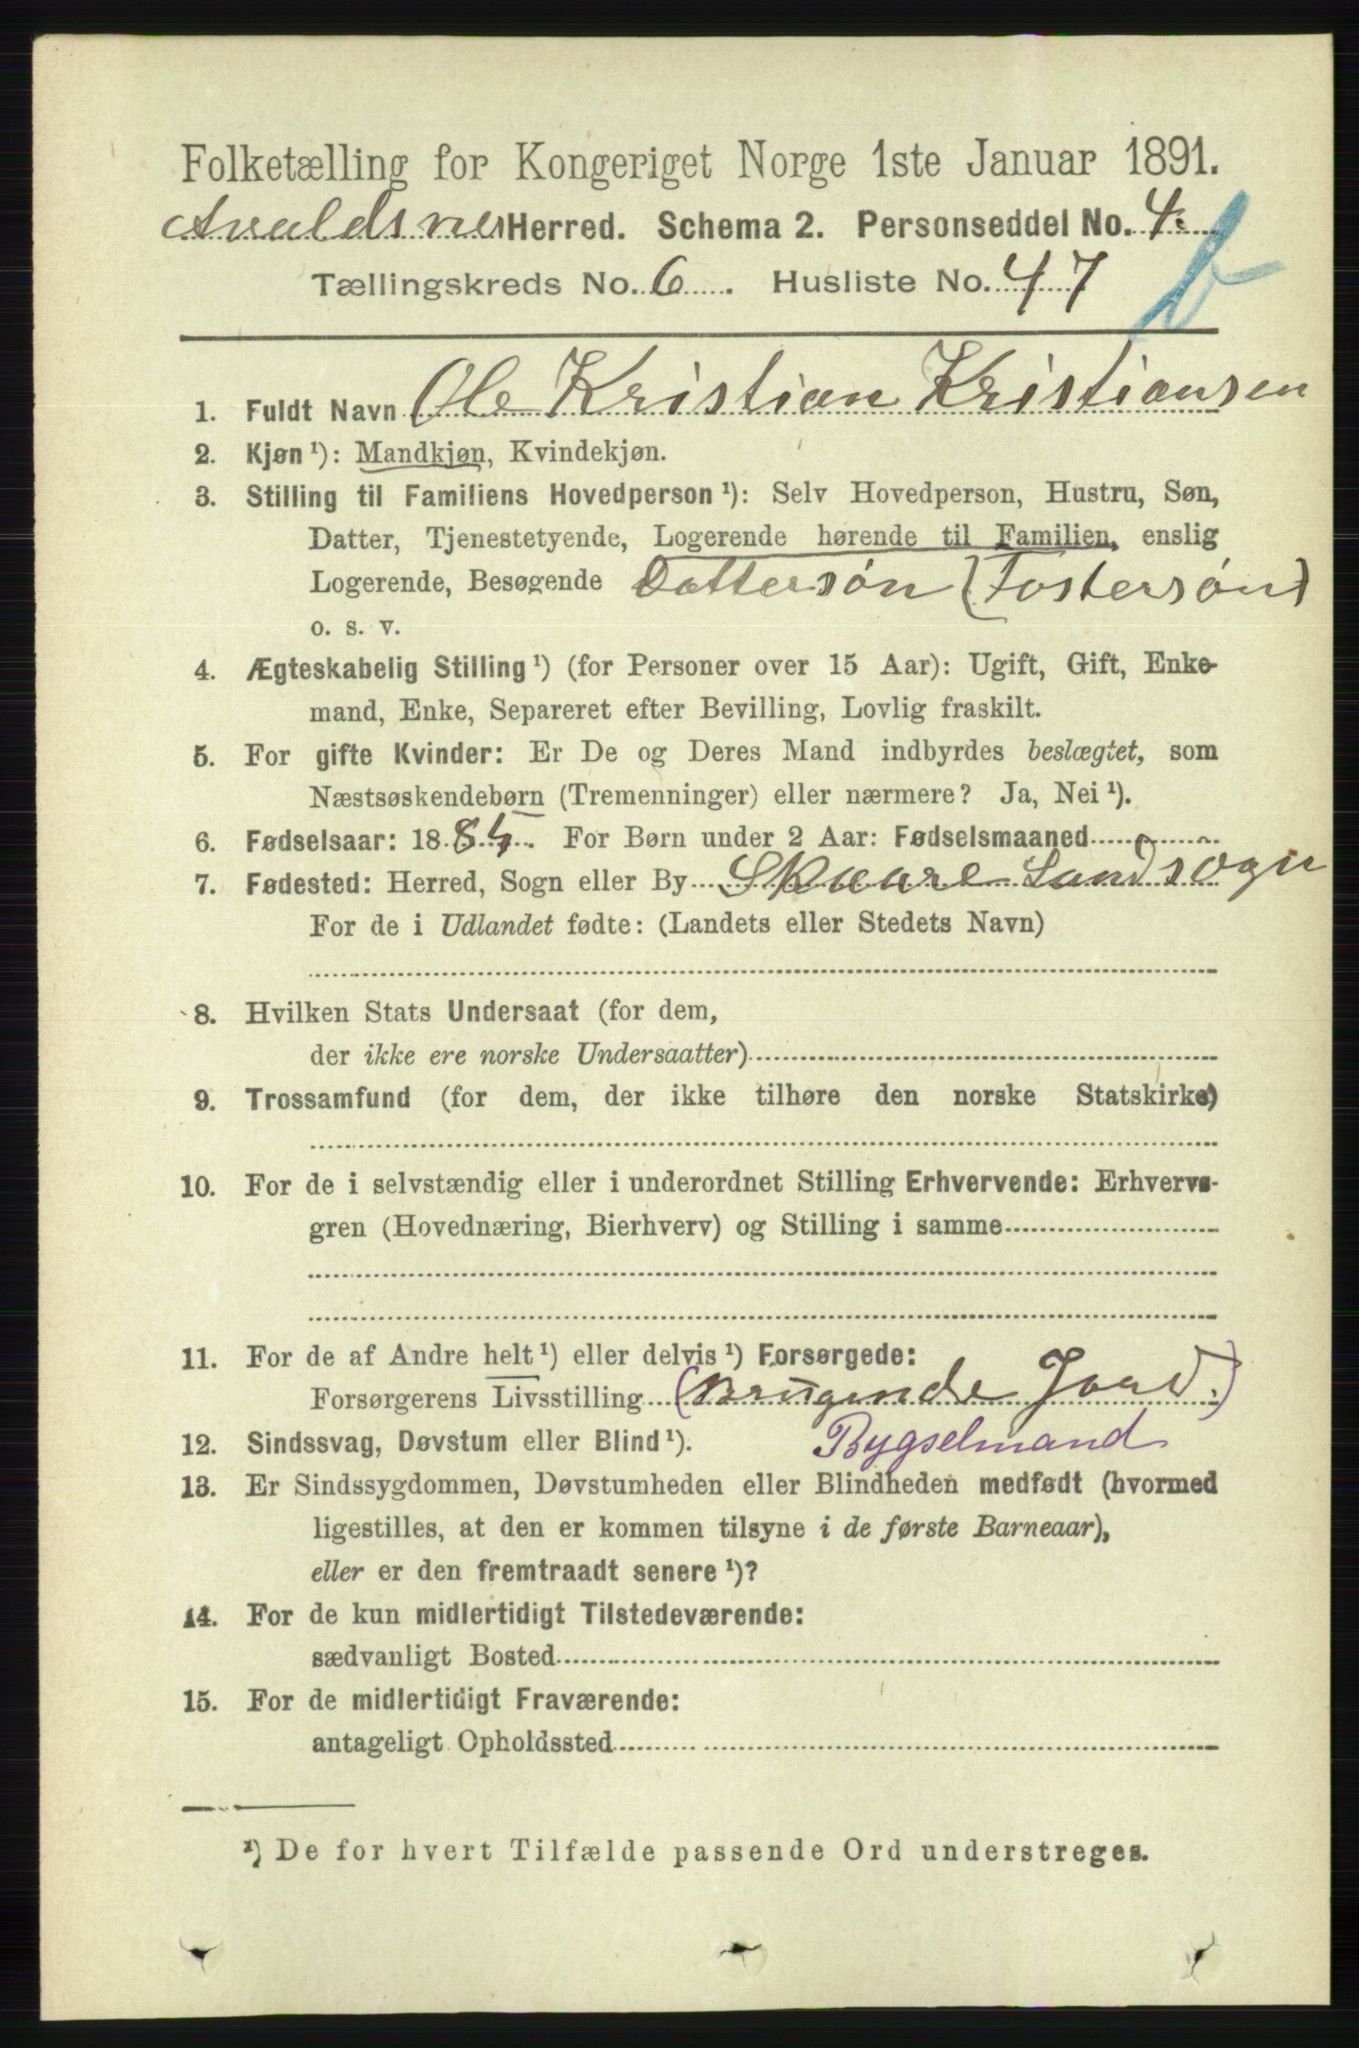 Folketælling for Kongeriget Norge 1ste Januar 1891.
Avaldsnes Herred. Schema 2. Personseddel No. 4.
Tællingskreds No. 6. Husliste No. 47
1. Fuldt Navn Ole Kristian Kristiansen
2. Kjøn ¹): Mandkjøn, Kvindekjøn.
3. Stilling til Familiens Hovedperson ¹): Selv Hovedperson, Hustru, Søn,
Datter, Tjenestetyende, Logerende hørende til Familien, enslig
Logerende, Besøgende Dattersøn (Fostersøn)
o. s. v.
4. Ægteskabelig Stilling ¹) (for Personer over 15 Aar): Ugift, Gift, Enke-
mand, Enke, Separeret efter Bevilling, Lovlig fraskilt.
5. For gifte Kvinder: Er De og Deres Mand indbyrdes beslægtet, som
Næstsøskendebørn (Tremenninger) eller nærmere? Ja, Nei ¹).
6. Fødselsaar: 1885. For Børn under 2 Aar: Fødselsmaaned
7. Fødested: Herred, Sogn eller By Skaare Landsogn
For de i Udlandet fødte: (Landets eller Stedets Navn)
8. Hvilken Stats Undersaat (for dem,
der ikke ere norske Undersaatter)
9. Trossamfund (for dem, der ikke tilhøre den norske Statskirke)
10. For de i selvstændig eller i underordnet Stilling Erhvervende: Erhvervs-
gren (Hovednæring, Bierhverv) og Stilling i samme
11. For de af Andre helt ¹) eller delvis ¹) Forsørgede:
Forsørgerens Livsstilling (Brugende Jord.)
12. Sindssvag, Døvstum eller Blind ¹). Bygselmand
13. Er Sindssygdommen, Døvstumheden eller Blindheden medfødt (hvormed
ligestilles, at den er kommen tilsyne i de første Barneaar),
eller er den fremtraadt senere ¹)?
14. For de kun midlertidigt Tilstedeværende:
sædvanligt Bosted
15. For de midlertidigt Fraværende:
antageligt Opholdssted
¹) De for hvert Tilfælde passende Ord understreges.